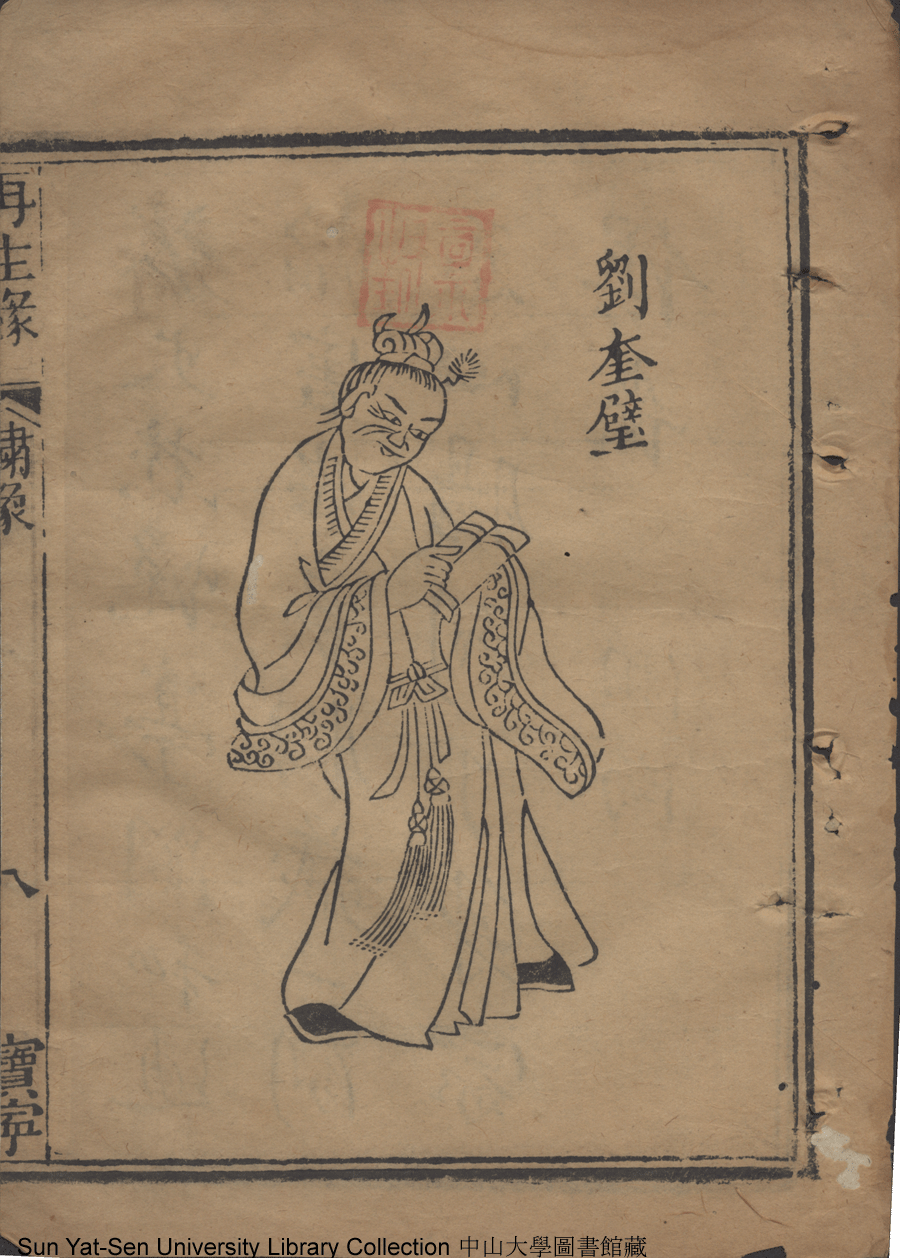 劉奎璧
再生緣
繡像
八
寶寧
Sun Yat-Sen University Library Collection 中山大學圖書館藏